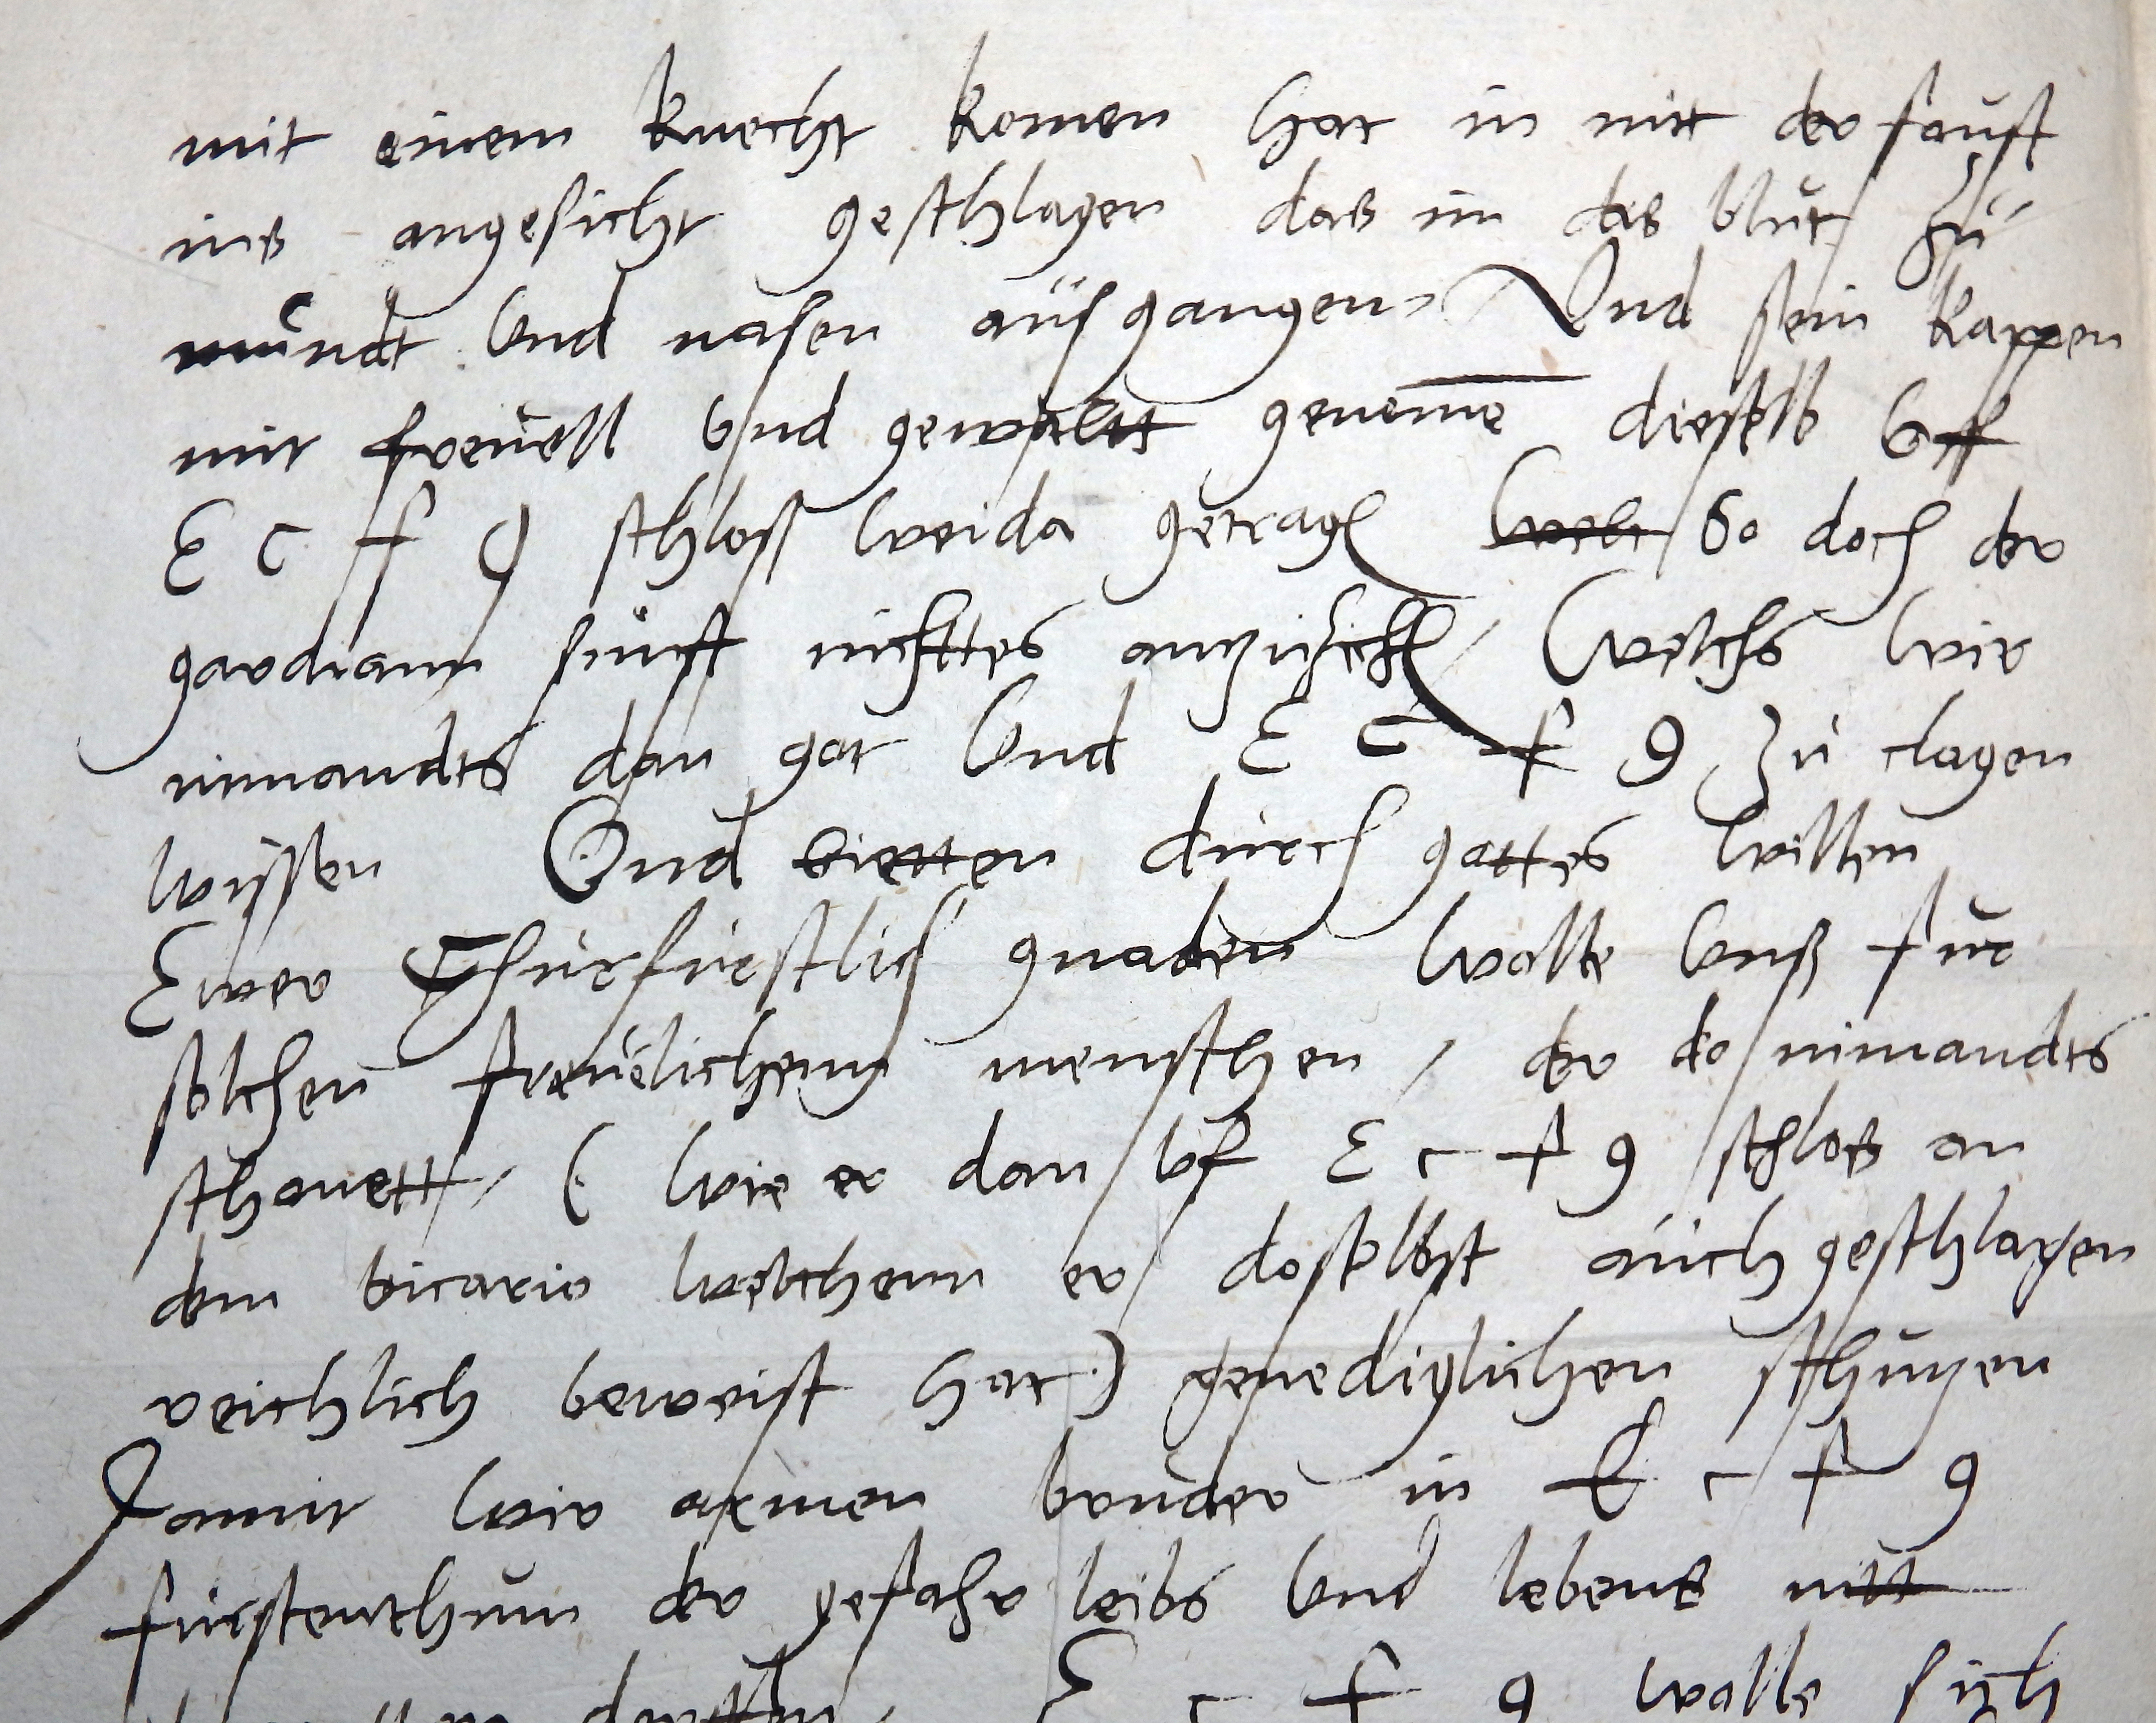 mit einem knecht komen hat in mit der faust
ins angesicht geschlagen das im das blut zu
mundt Vnd nasen ausgangen / Vnd sein kappen
mit freuell vnd gewaltt geneme dieselb vff
E c f g schloss weida getragen So doch der
gardiann sunst nichttes anzuzichen / Welchs wir
nimandts dan got Vnd E c f g Zu clagen
wissen Vnd bietten durch gottes willen
Ewer Churfurstlich gnaden wolle vnß fur
solchen freuelichenn menschen / der do nimandts
schonett / ( wie er dan vf E c f g schlos an
dem vicario welchenn er doselbst auch geschlagen
reichlich beweist hat ) genediglichen schutzen
Damit wir armen bruder in E c f g
furstenthum der gefahr leibs vnd lebens nitt
E c f g wolle sich